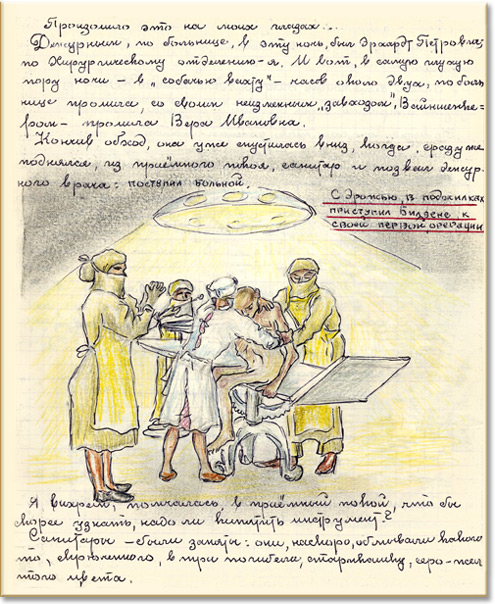 Произошло это на моих глазах...
Дежурным, по больнице, в эту ночь, был Эрхардт Петровка;
по Хирургическому отделению-я. И вот, в самую глухую
пору ночи - в „собачью вахту" - часов около двух, по боль-
нице прошла, со своим неизменным „завхозом", Вайншенке-
ром - прошла Вера Ивановна.
Кончив обход, она уже спустилась вниз, когда, сразу же
поднялся, из приёмного покоя, санитар и позвал дежур-
ного врача: поступил больной.
С дрожью, в поджилках
приступил Билзенс к
своей первой операции
Я вихрем, помчалась, в приёмный покой, что бы
скорее узнать, надо ли кипятить инструмент?
Санитары - были заняты: они, наскоро, обмывали какого
то, скрюченного, в три погибели, старикашку, серо-жел
того цвета.